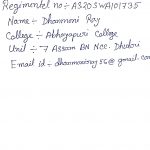 Regimentel no:- AS20SWA101735
Name:- Dhanmoni Ray
College:- Abhayapuri College
Unit:- 7 Assam BN Ncc. Dhubri
Email id:- dhanmoniray56@gmail.com